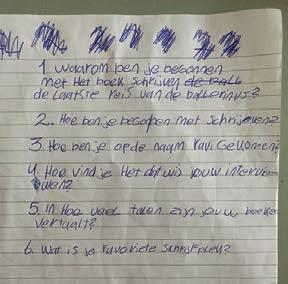 1. waarom ben je begonnen
met Het boek schrijven de ball
de laatste reis van de ballerinus?
2. Hoe ben je begonnen met schrijven?
3. Hoe ben je op de naam ravi Gekomen?
4. Hoe vind je Het dat wij jouw interview
wen?
5. in Hoe veel talen zijn jouw boeken
vertaalt?
6. Wat is je Favoriete